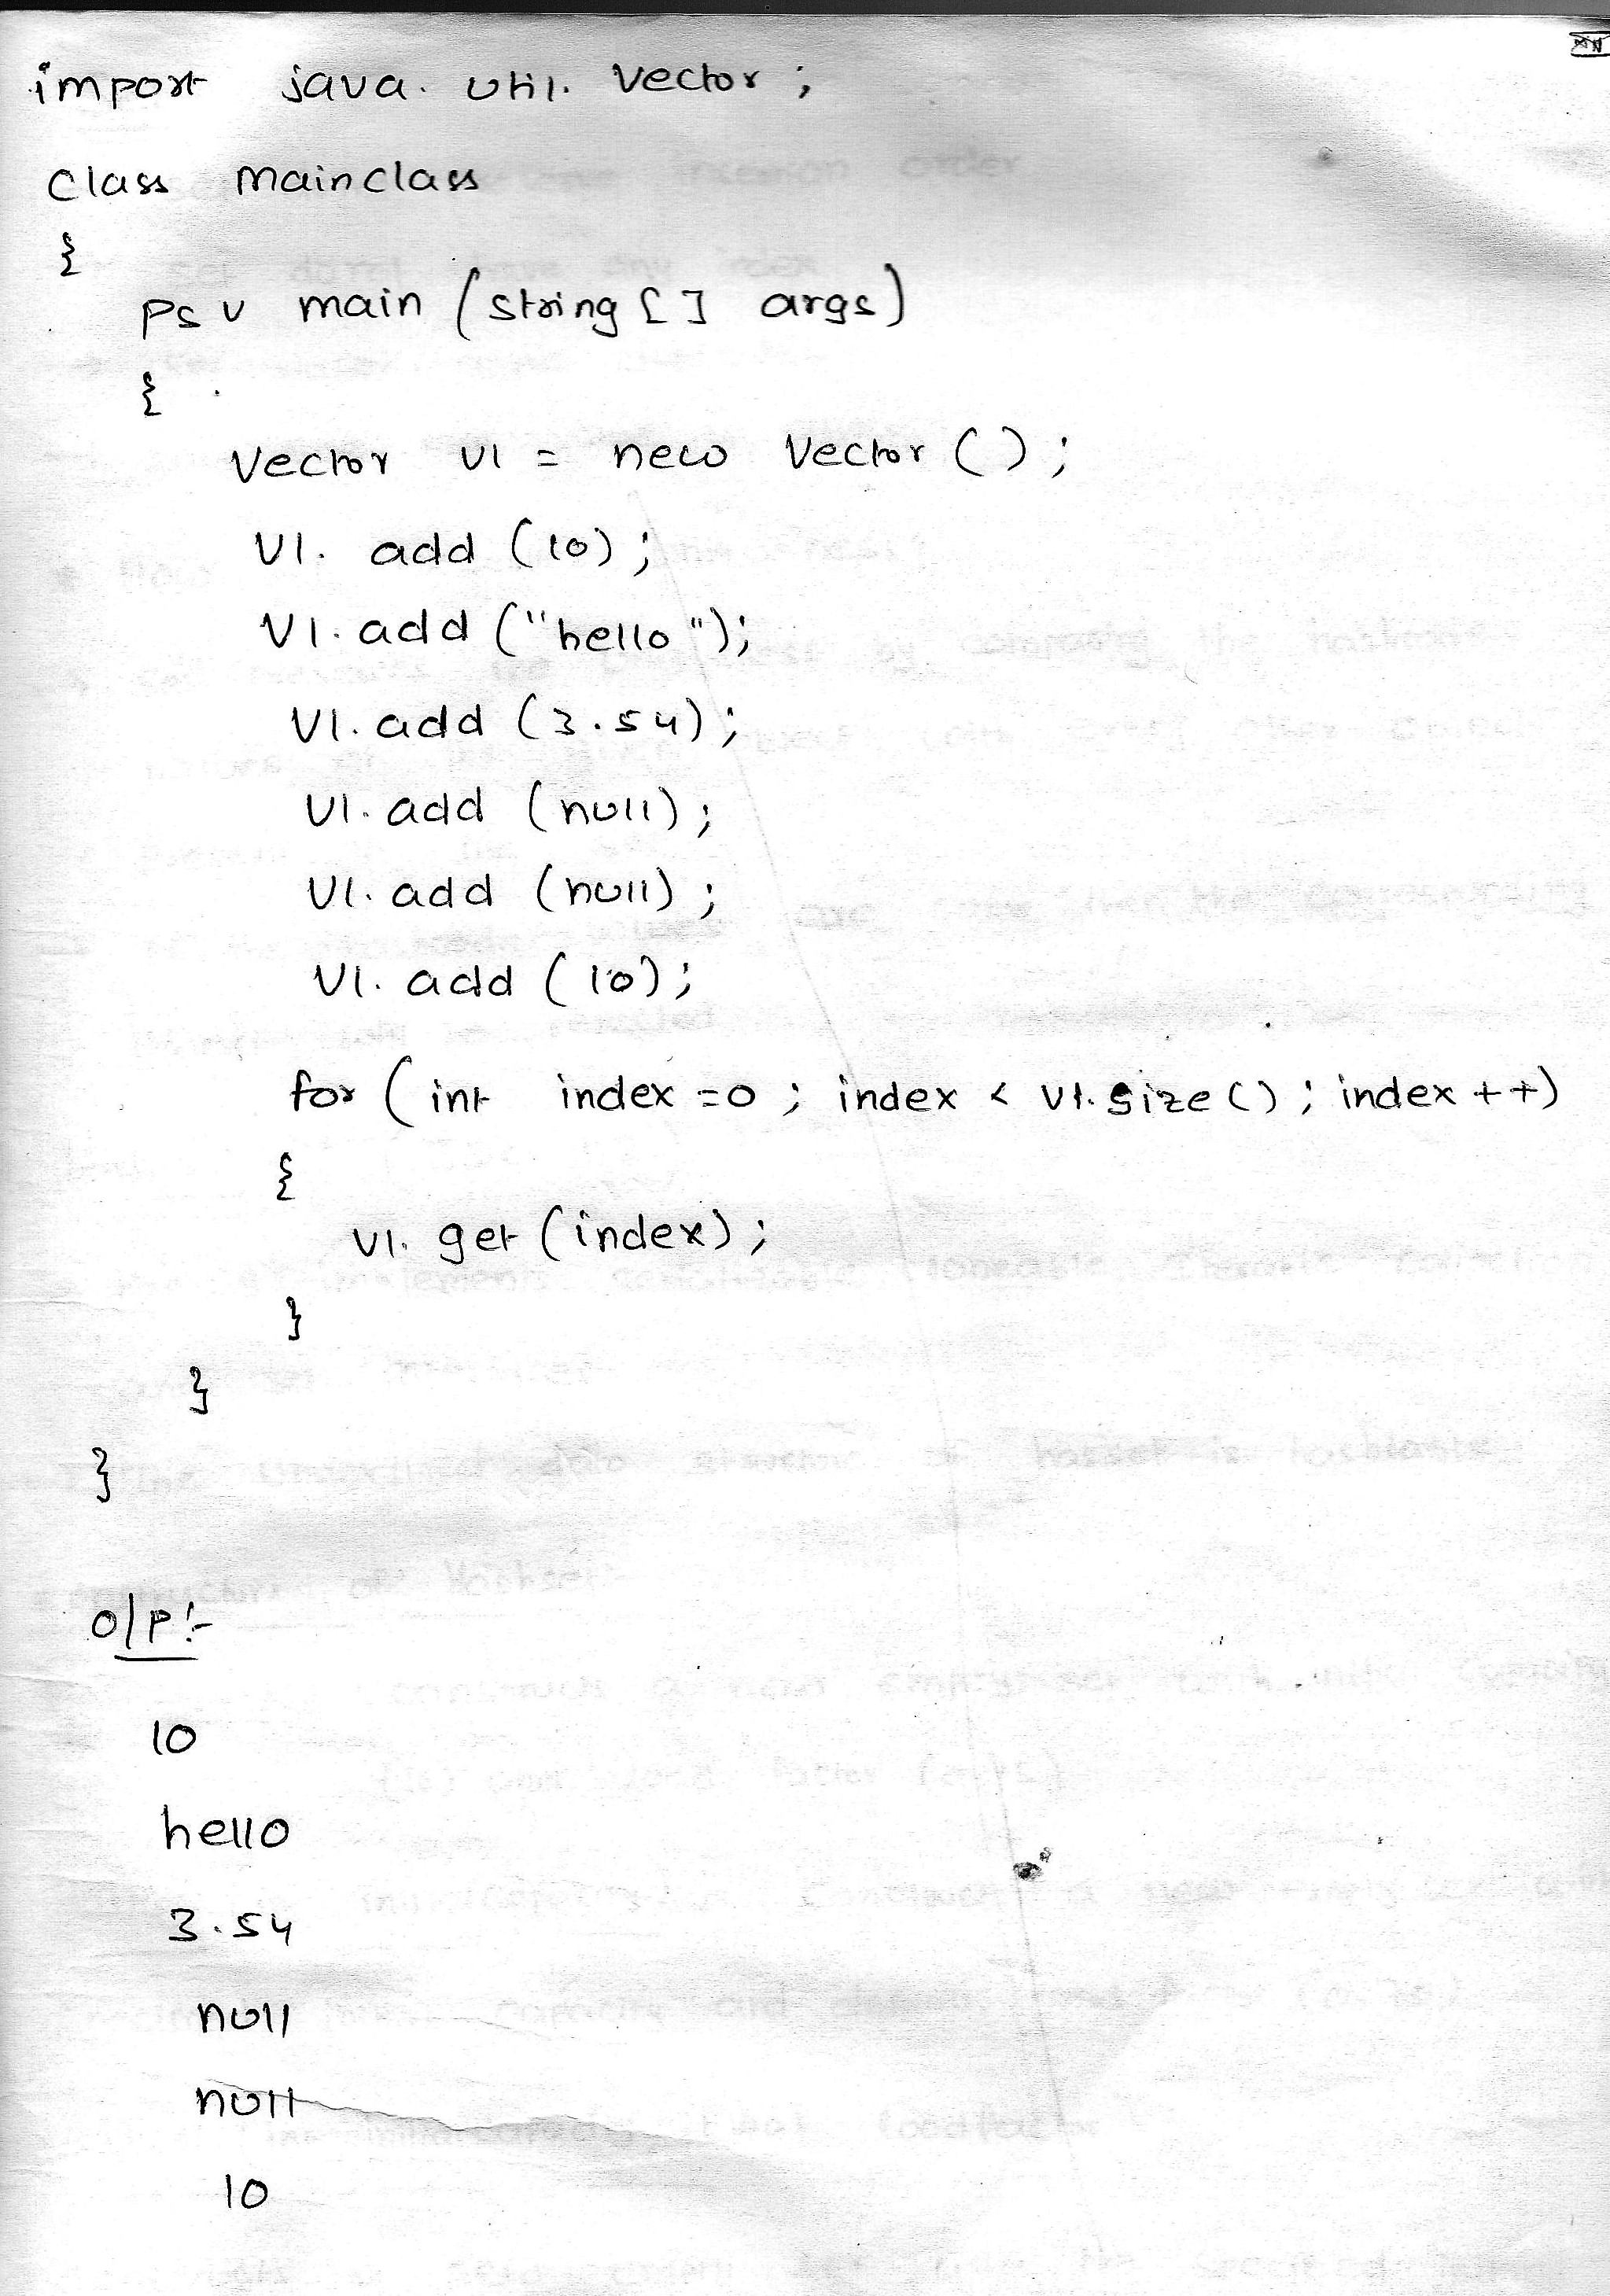 import java.util.Vector;
class mainclass
{
psv main (string [] args)
{
Vector v1 = new Vector ();
v1. add (10);
v1. add ("hello");
v1. add (3.54);
v1. add (null);
v1. add (null);
v1. add (10);
for ( int index =0 ; index < v1. size () ; index ++)
{
v1. get (index);
}
}
}
o/p:-
10
hello
3.54
null
null
10